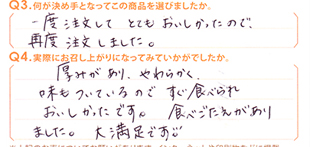 Q3.何が決め手となってこの商品を選びましたか。
一度注文して とても おいしかったので、
再度 注文しました。
Q4.実際にお召し上がりになってみていかがでしたか。
厚みがあり、やわらかく、
味もついているので すぐ食べられ
おいしかったです。 食べごたえがあり
ました。 大満足です